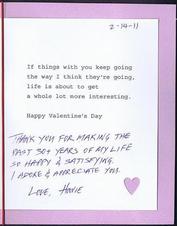 2-14-11
If things with you keep going
the way I think they're going,
life is about to get
a whole lot more interesting.
Happy Valentine's Day
THANK YOU FOR MAKING THE
PAST 30+ YEARS OF MY LIFE
SO HAPPY & SATISFYING.
I ADORE & APPRECIATE YOU.
LOVE, HOWIE